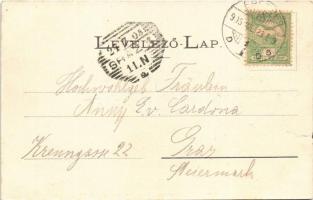 LEVELEZŐ-LAP.
11.N
Hochwohlgeb. Fräulein
Anny Ev. Cardona
Krenngasse 22
Graz
Steiermark